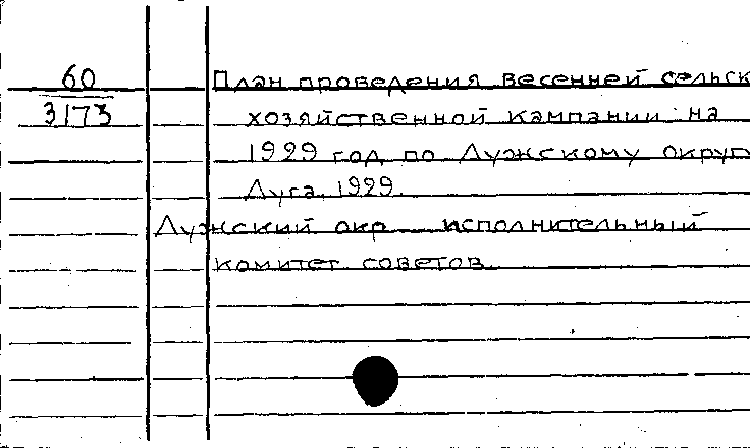 60
3173
План проведения весенней сельск
хозяйственной кампании на
1929 год по Лужскому округ
Луга, 1929.
Лужский окр исполнительный
комитет советов